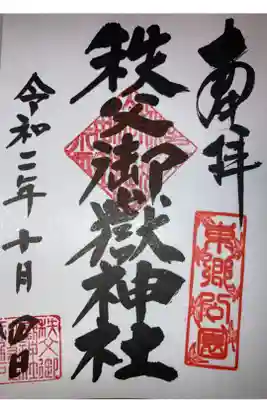 奉拝
東郷公園
秩父御嶽神社
令和二年十月四日